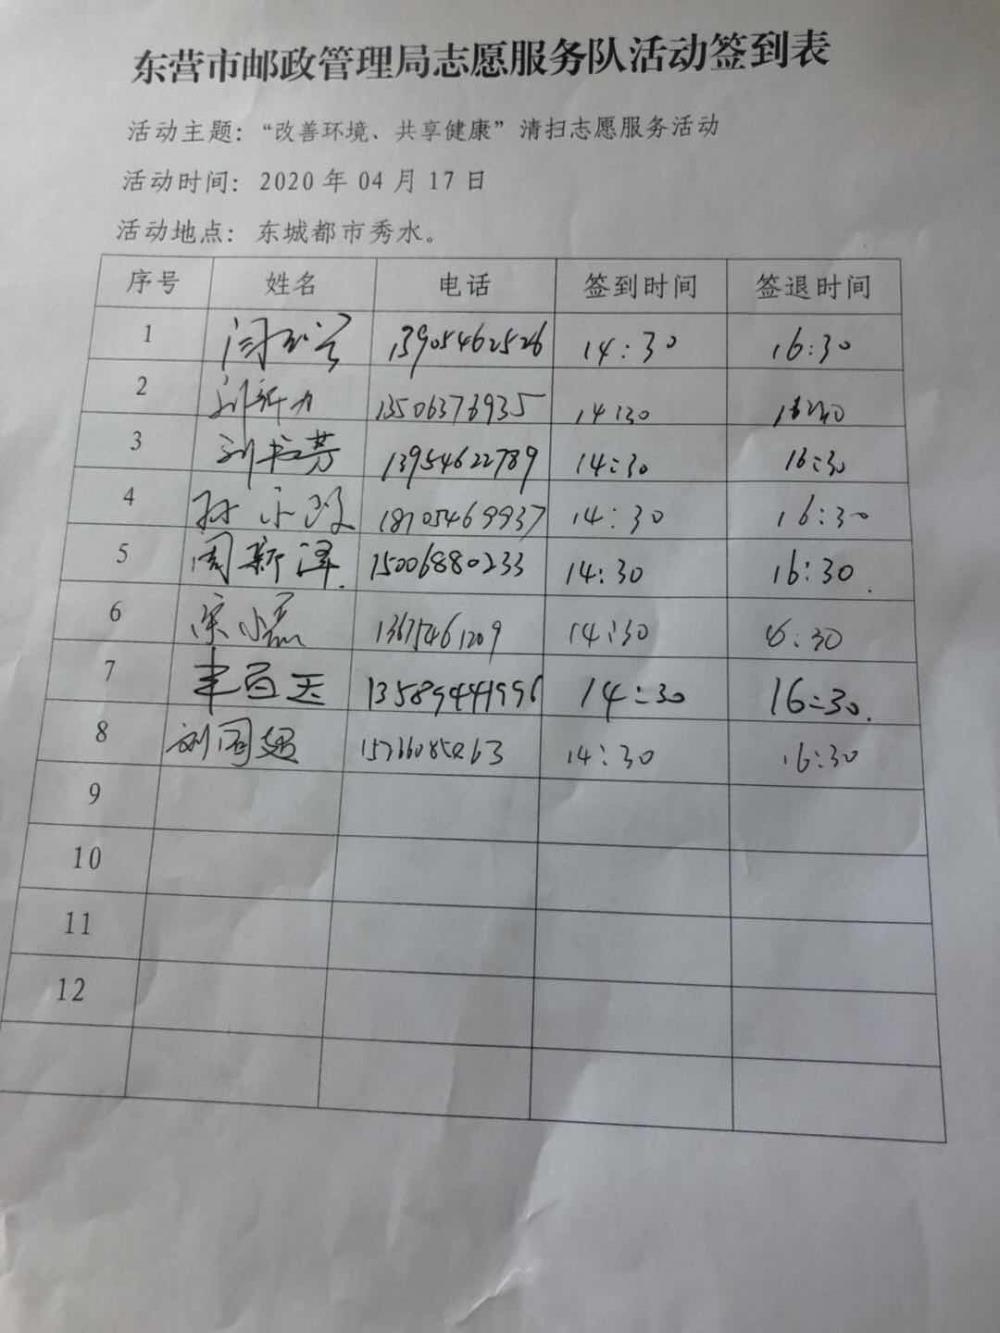 东营市邮政管理局志愿服务队活动签到表
活动主题：“改善环境、共享健康”清扫志愿服务活动
活动时间：2020 年 04 月 17 日
活动地点：东城都市秀水。
序号 姓名 电话 签到时间 签退时间
1 13905462526 14:30 16:30
2 13506376935 14:30
3 刘书芳 13954622789 14:30 16:30
4 18105469937 14:30 16:30
5 周新泽 15006880233 14:30 16:30
6 13675461209 14:30 16:30
7 丰百玉 13589441996 14:30 16:30
8 14:30 16:30
9
10
11
12